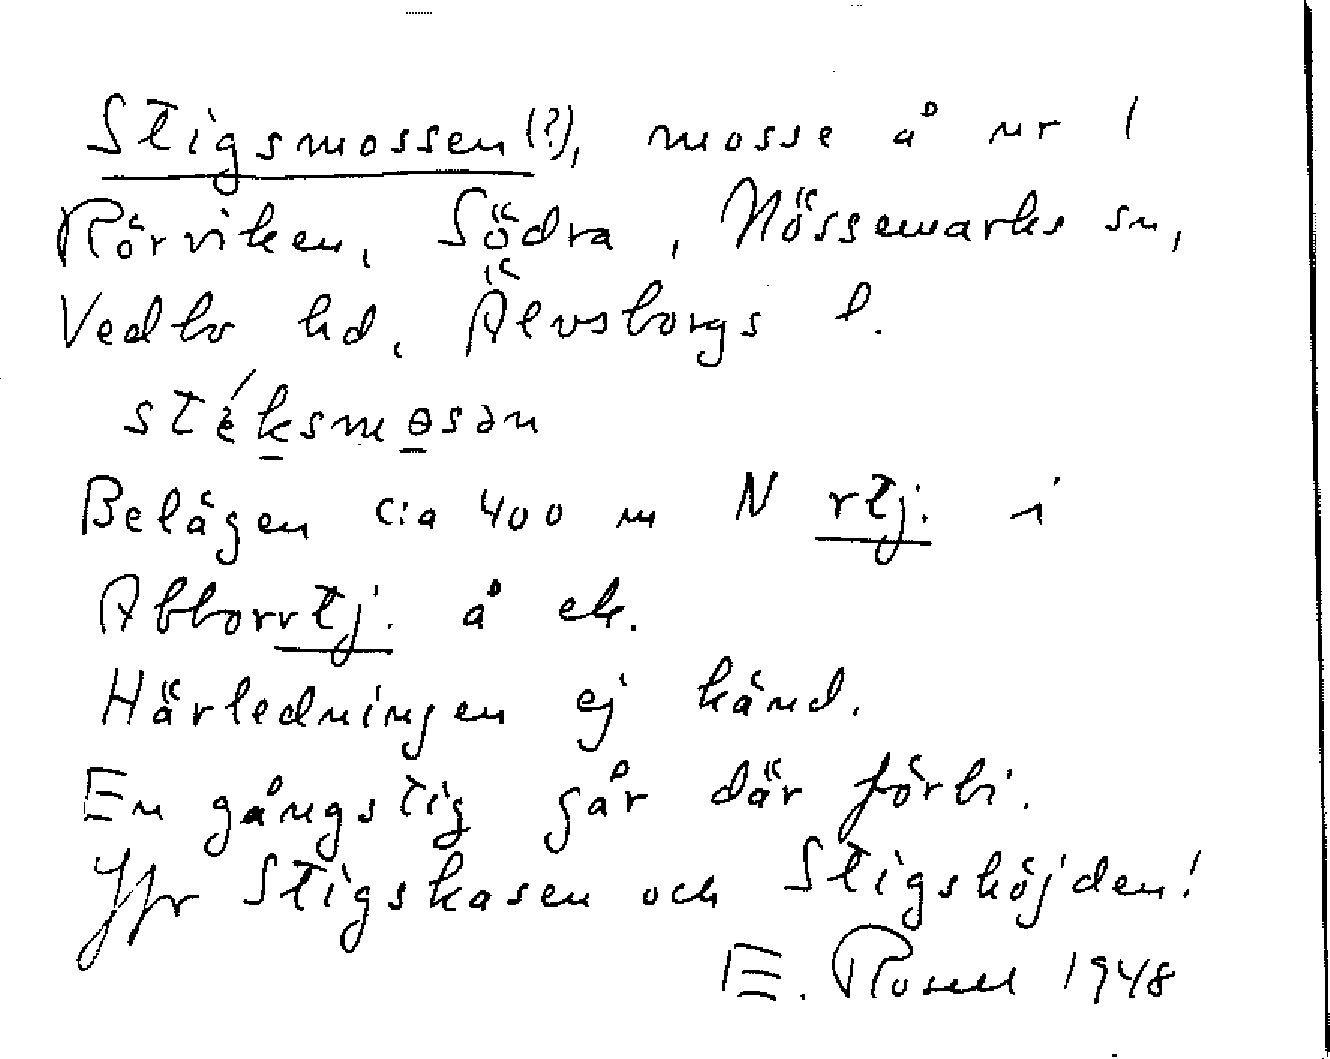 Stigsmossen(?), mosse å nr 1
Rörviken, Södra, Nössemarks sn,
Vedbo hd, Älvsborgs l.
stéksmɵsən
Belägen c:a 400 m N rtj. i
Abborrtj. å ek.
Härledningen ej känd.
En gångstig går där förbi.
Jfr Stigskasen och Stigshöjden!
E. Rosell 1948